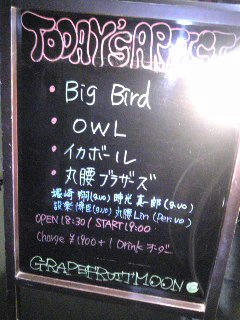 TODAY'S ARTIST
・Big Bird
・OWL
・イカボール
・丸腰ブラザーズ
堀崎 翔(g.vo) 時光 真一郎(g.vo)
設楽 博臣(g.vo) 丸腰Lin(Per.vo)
OPEN 18:30 / START 19:00
Charge ¥1,900 + 1 Drink オーダー
GRAPEFRUIT MOON